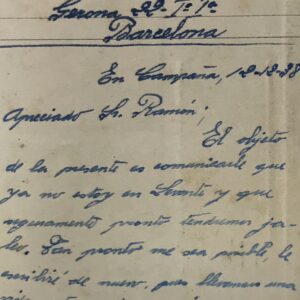 Gerona 22-1º-1ª
Barcelona
En Campaña, 12-12-38
Apreciado Sr. Ramón;
El objeto
de la presente es comunicarle que
ya no estoy en Levante y que
seguramente pronto tendremos ja-
leo. Tan pronto me sea posible, le
escribiré de nuevo, pues llevamos una